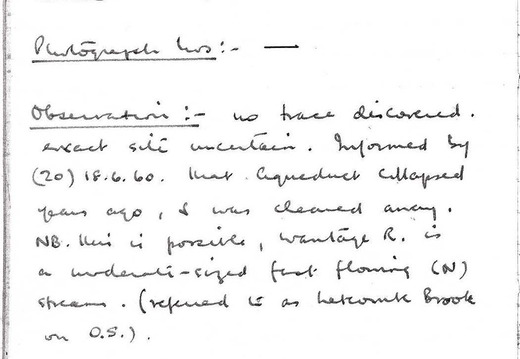 Photograph Nos:- —
Observation:- no trace discovered.
exact site uncertain. Informed by
(20) 18.6.60. that Aqueduct collapsed
years ago, & was cleared away.
NB. this is possible, Wantage R. is
a moderate-sized fast flowing (N)
stream. (referred to as Letcombe Brook
on O.S.).